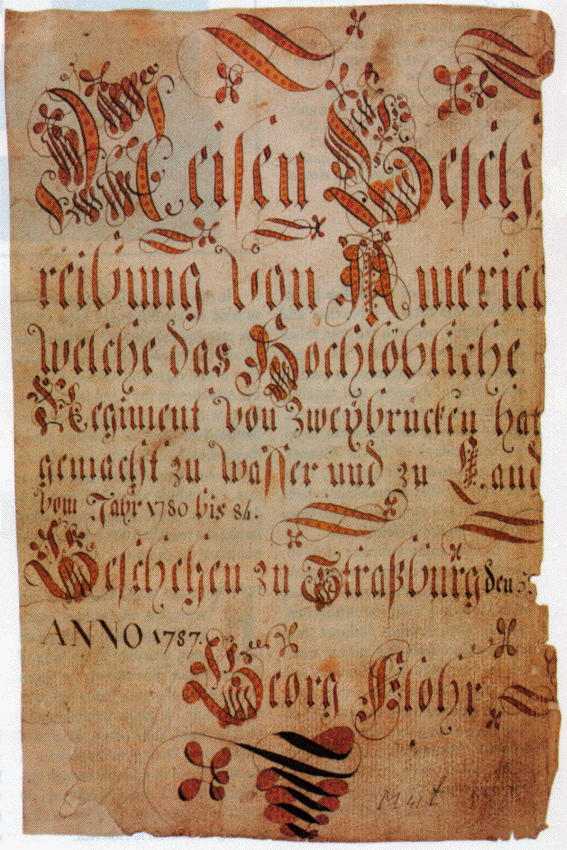 Reisen Besch
reibung von America
welche das Hochlöbliche
Regiment von Zweybrücken hat
gemacht zu wasser und zu Land
vom Jahr 1780 bis 84.
Geschehen zu Straßburg den 5
ANNO 1787.
Georg Flohr